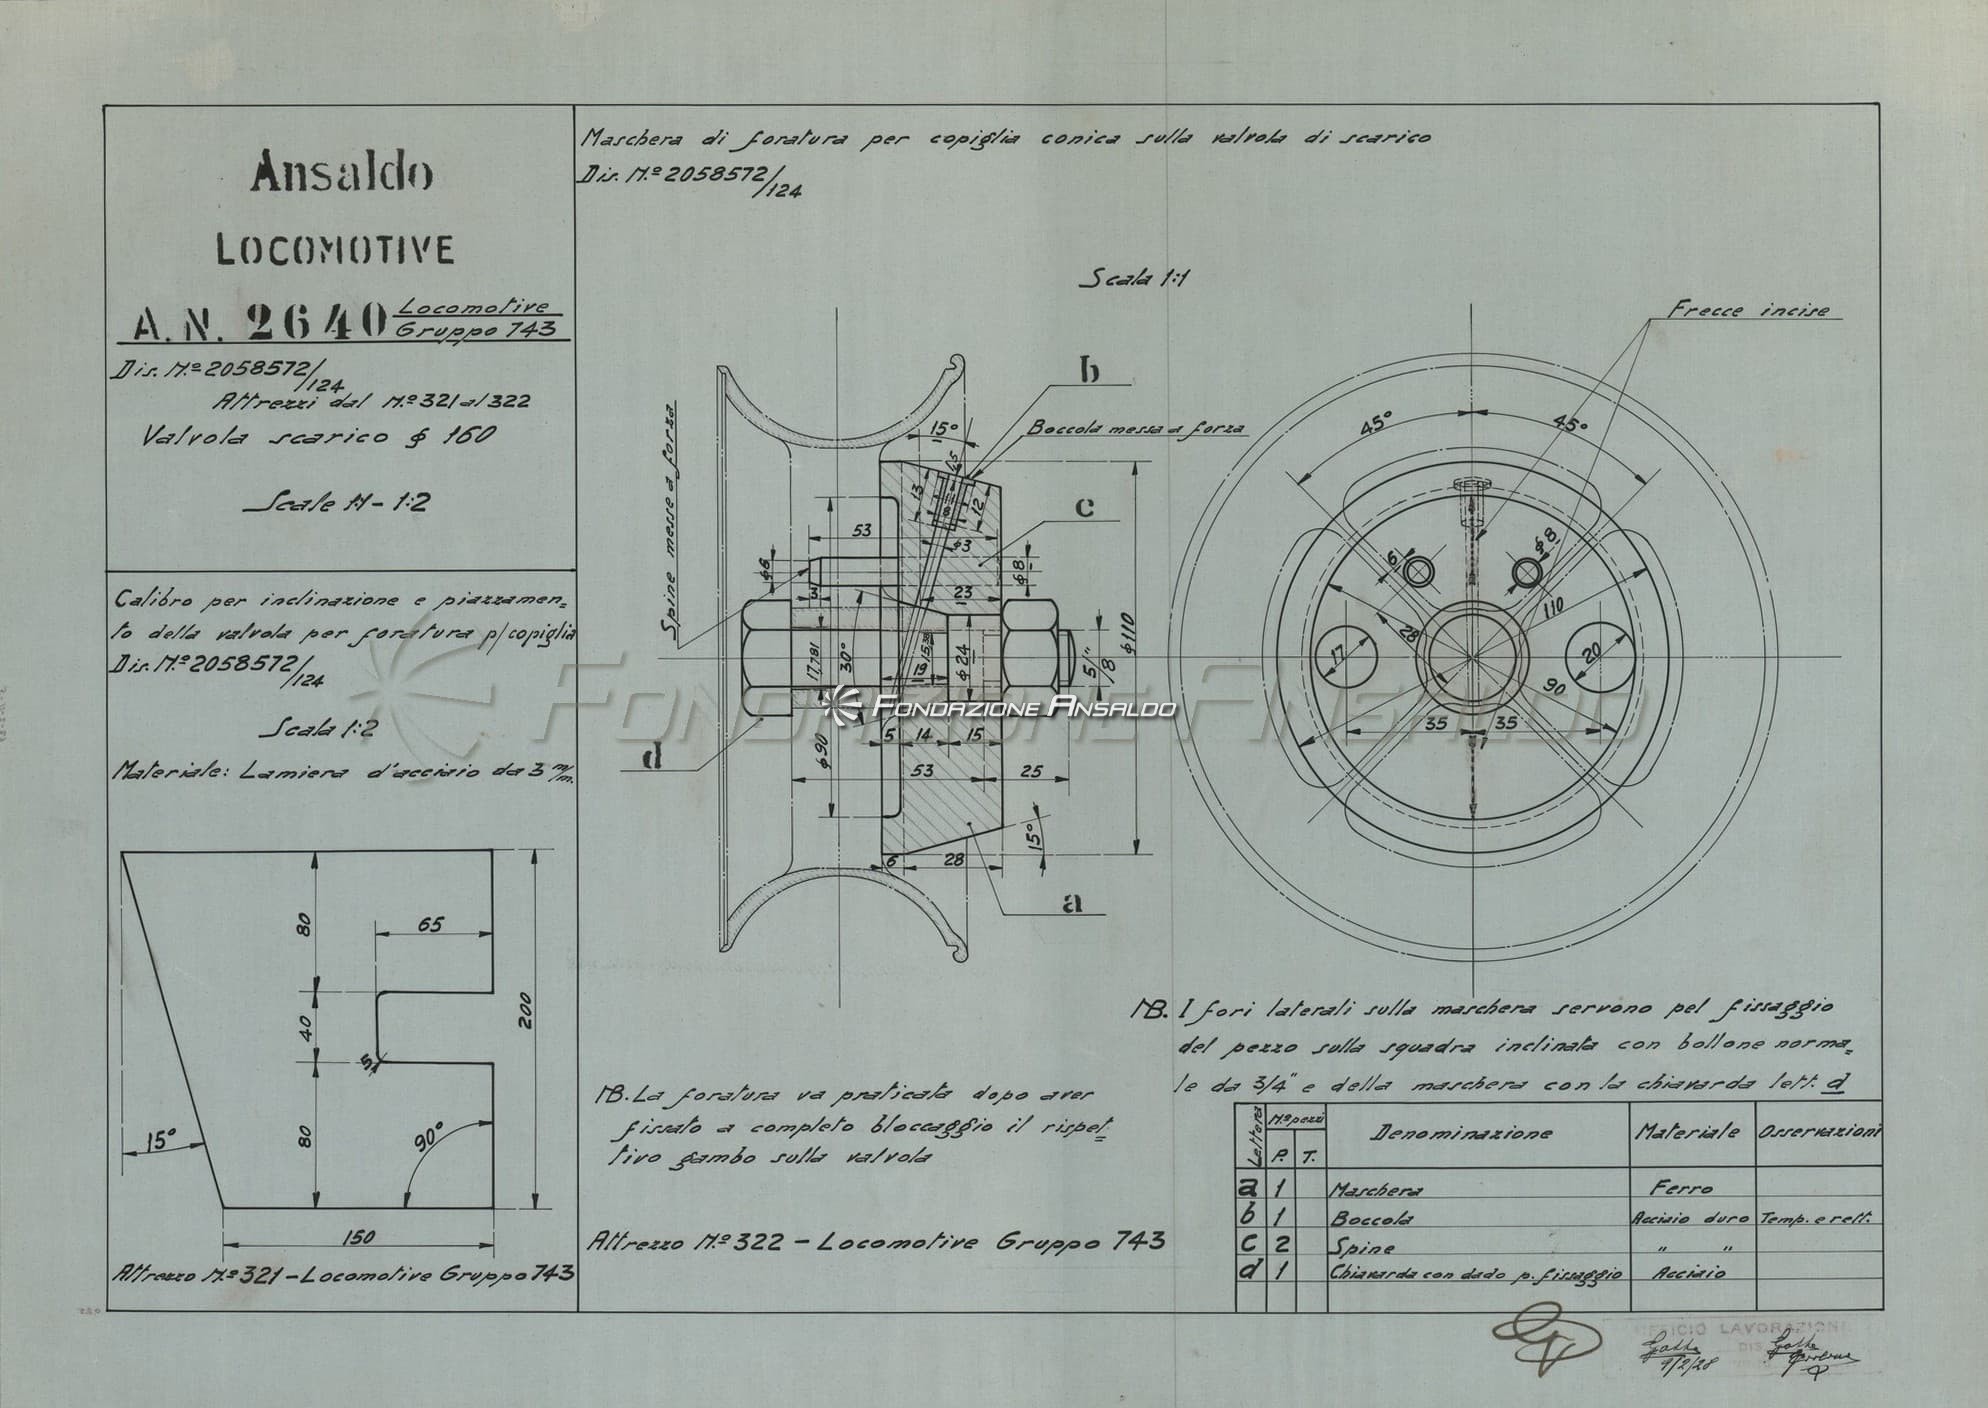 Ansaldo
LOCOMOTIVE
A.N. 2640 Locomotive Gruppo 743
Dis. N.º 2058572/124
Attrezzi dal N.º 321 al 322
Valvola scarico ϕ 160
Scale 1:1 - 1:2
Calibro per inclinazione e piazzamen=
to della valvola per foratura p/copiglia
Dis. N.º 2058572/124
Scala 1:2
Materiale: Lamiera d'acciaio da 3 m/m.
80
65
40
200
5
80
15°
90°
150
Attrezzo N.º 321 - Locomotive Gruppo 743
Maschera di foratura per copiglia conica sulla valvola di scarico
Dis. N.º 2058572/124
Scala 1:1
Frecce incise
b
15°
Boccola messa a forza
Spine messe a forza
13
12
c
53
ϕ3
ϕ6
ϕ8
3
23
ϕ110
17,781
30°
19
ϕ24
5/8"
d
ϕ90
5
14
15
53
25
15°
6
28
a
45°
45°
6
ϕ8
110
28
17
20
90
35
35
FONDAZIONE ANSALDO
FONDAZIONE ANSALDO
NB. La foratura va praticata dopo aver
fissato a completo bloccaggio il rispet=
tivo gambo sulla valvola
Attrezzo N.º 322 - Locomotive Gruppo 743
NB. I fori laterali sulla maschera servono pel fissaggio
del pezzo sulla squadra inclinata con bollone norma=
le da 3/4" e della maschera con la chiavarda lett. d
Lettera N.º pezzi P. T. Denominazione Materiale Osservazioni
a 1 Maschera Ferro
b 1 Boccola Acciaio duro Temp. e rett.
c 2 Spine " "
d 1 Chiavarda con dado p. fissaggio Acciaio
UFFICIO LAVORAZIONI
9/2/28